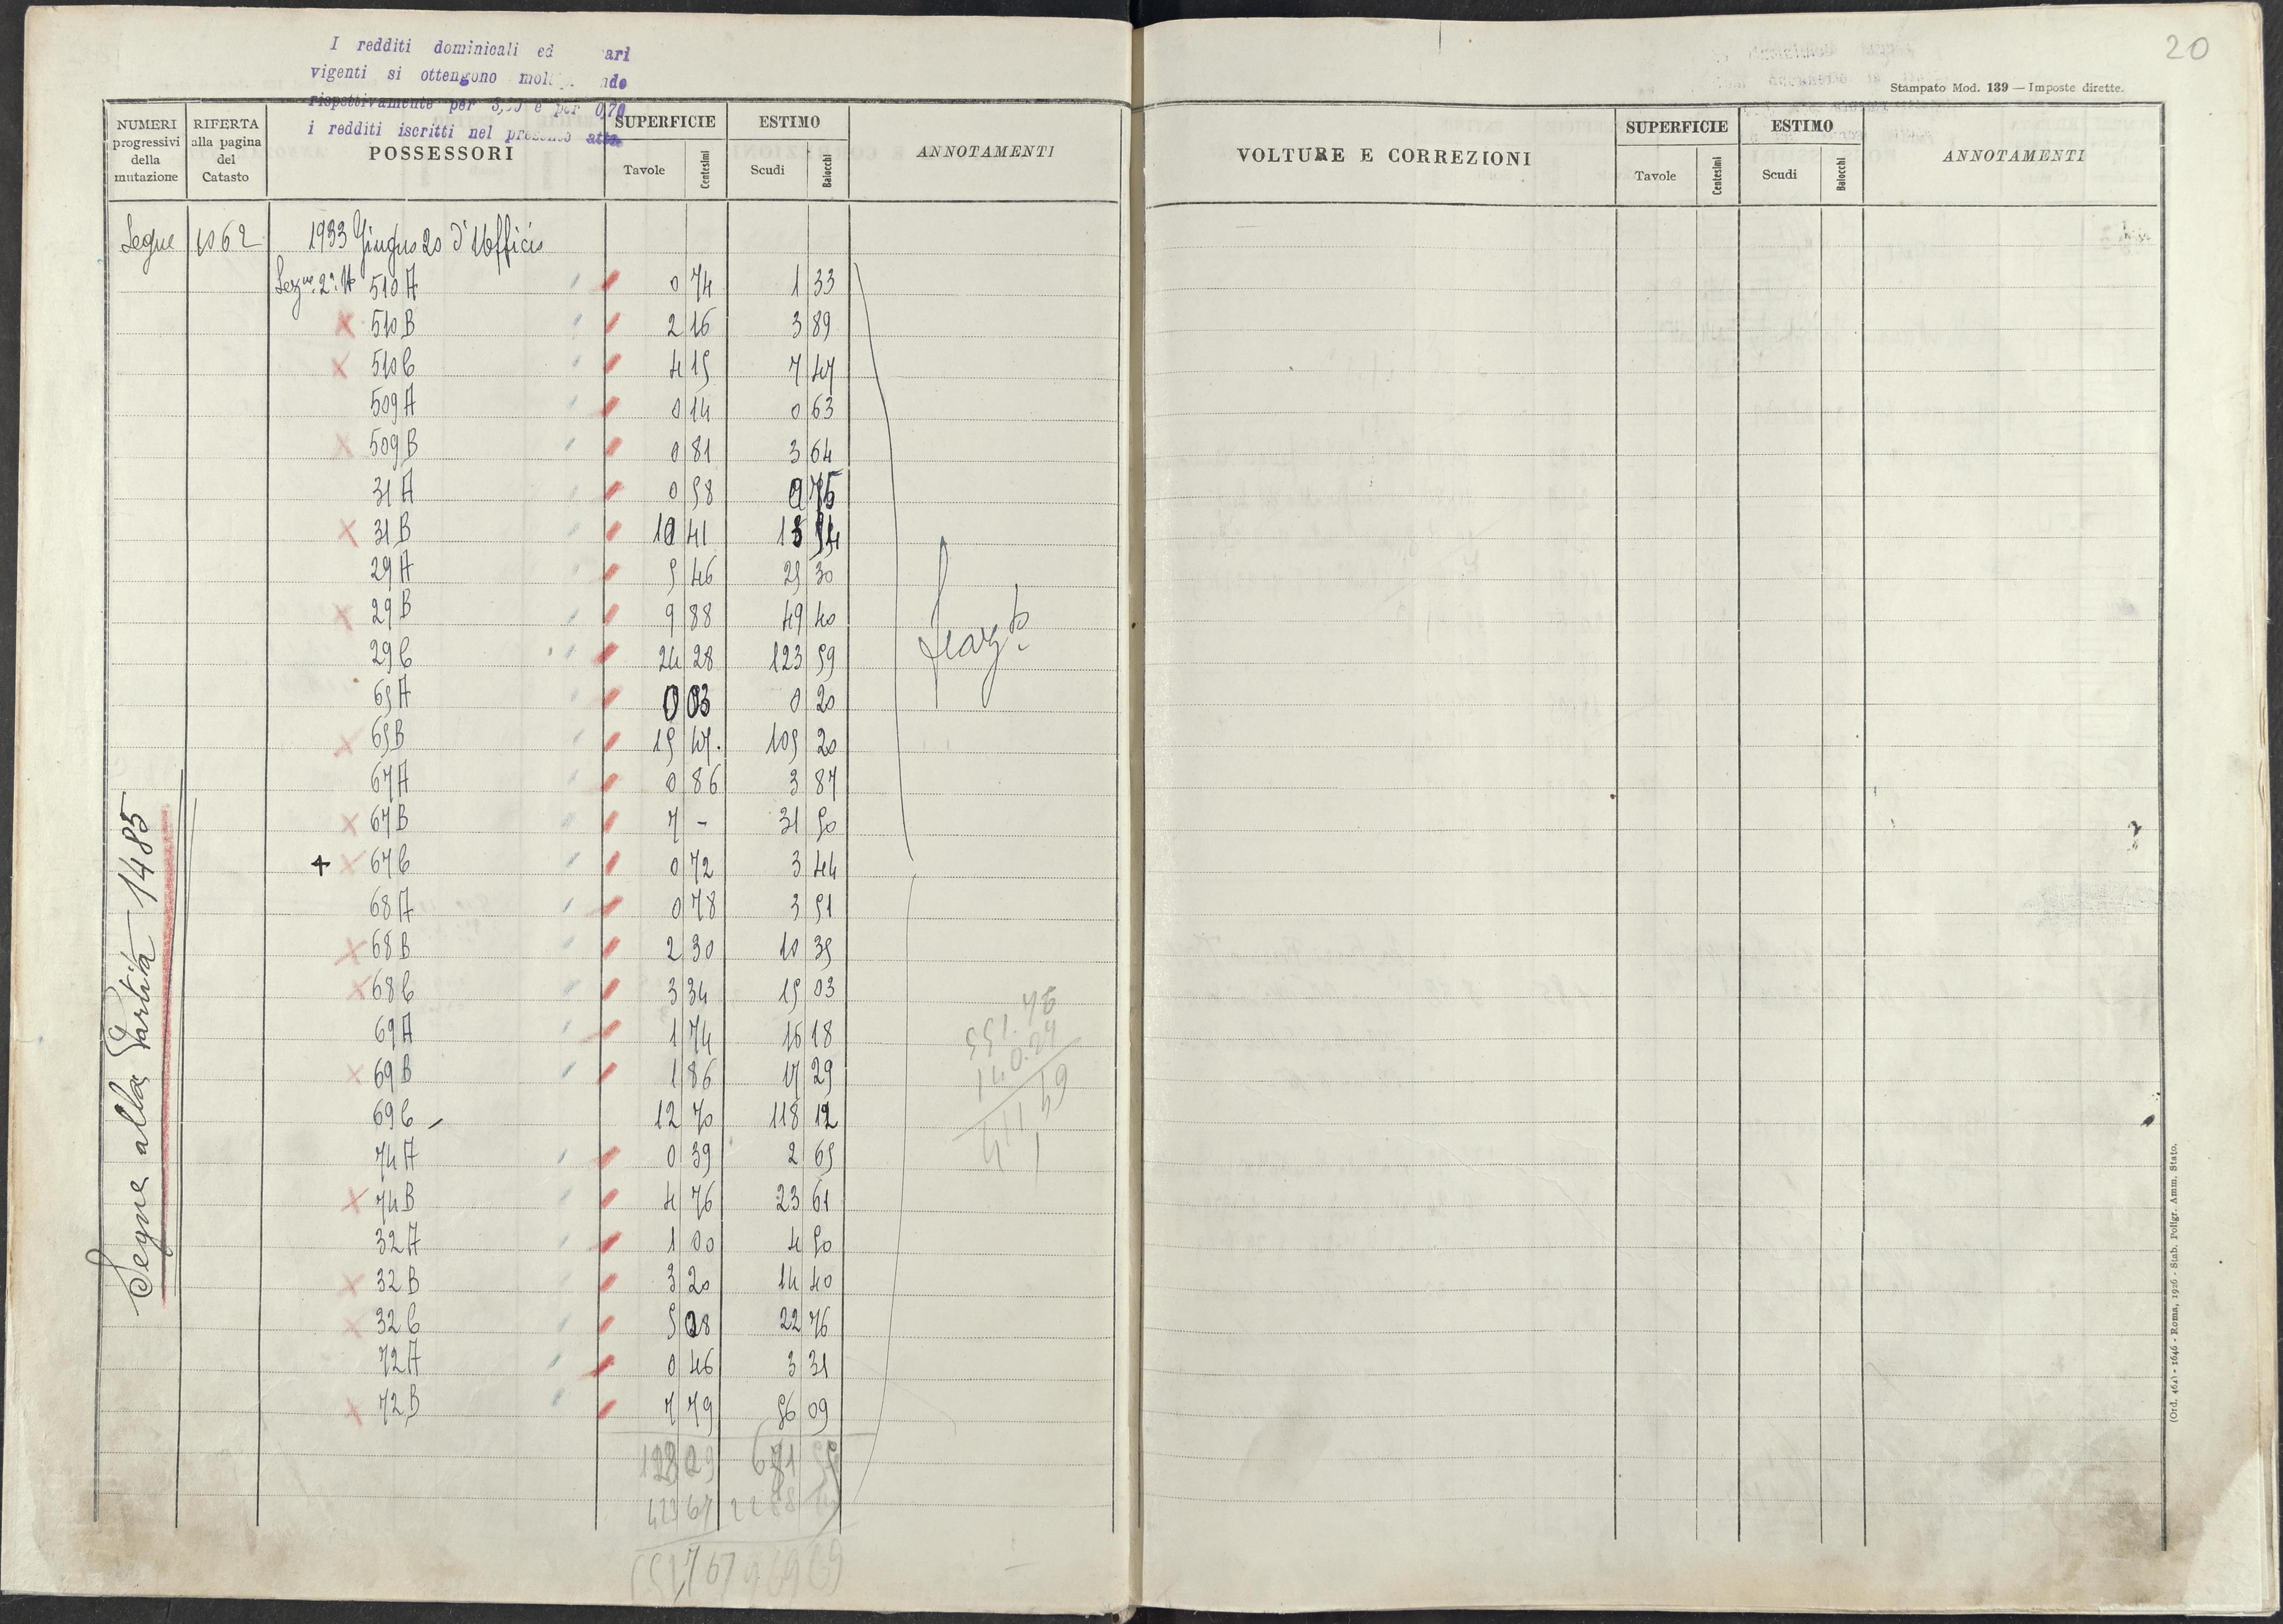 I redditi dominicali ed ari
vigenti si ottengono mol ndo
rispettivamente per e per 0,70
i redditi iscritti nel presente atto
NUMERI progressivi della mutazione
RIFERTA alla pagina del Catasto
POSSESSORI
SUPERFICIE
Tavole Centesimi
ESTIMO
Scudi Baiocchi
ANNOTAMENTI
Segue 1062 1933 Giugno 20 d'Ufficio
Sezne 2a A 510 A 0 74 1 33
510 B 2 16 3 89
510 C 4 15 7 47
509 A 0 14 0 63
509 B 0 81 3 64
31 A 0 58 0 75
31 B 10 41 13 54
29 A 5 46 25 30
29 B 9 88 49 40
29 C 24 28 123 59
65 A 0 03 0 20
65 B 15 47. 105 20
67 A 0 86 3 87
67 B 7 - 31 50
+ 67 C 0 72 3 44
68 A 0 78 3 51
68 B 2 30 10 35
68 C 3 34 15 03
69 A 1 74 16 18
69 B 1 86 17 29
69 C 12 70 118 12
74 A 0 39 2 65
74 B 4 76 23 61
32 A 1 00 4 50
32 B 3 20 14 40
32 C 5 08 22 76
72 A 0 46 3 31
72 B 7 79 56 09
Segue alla Partita 1485
20
Stampato Mod. 139 — Imposte dirette.
VOLTURE E CORREZIONI
SUPERFICIE
Tavole Centesimi
ESTIMO
Scudi Baiocchi
ANNOTAMENTI
(Ord. 464) - 1646 - Roma, 1926 - Stab. Poligr. Amm. Stato.